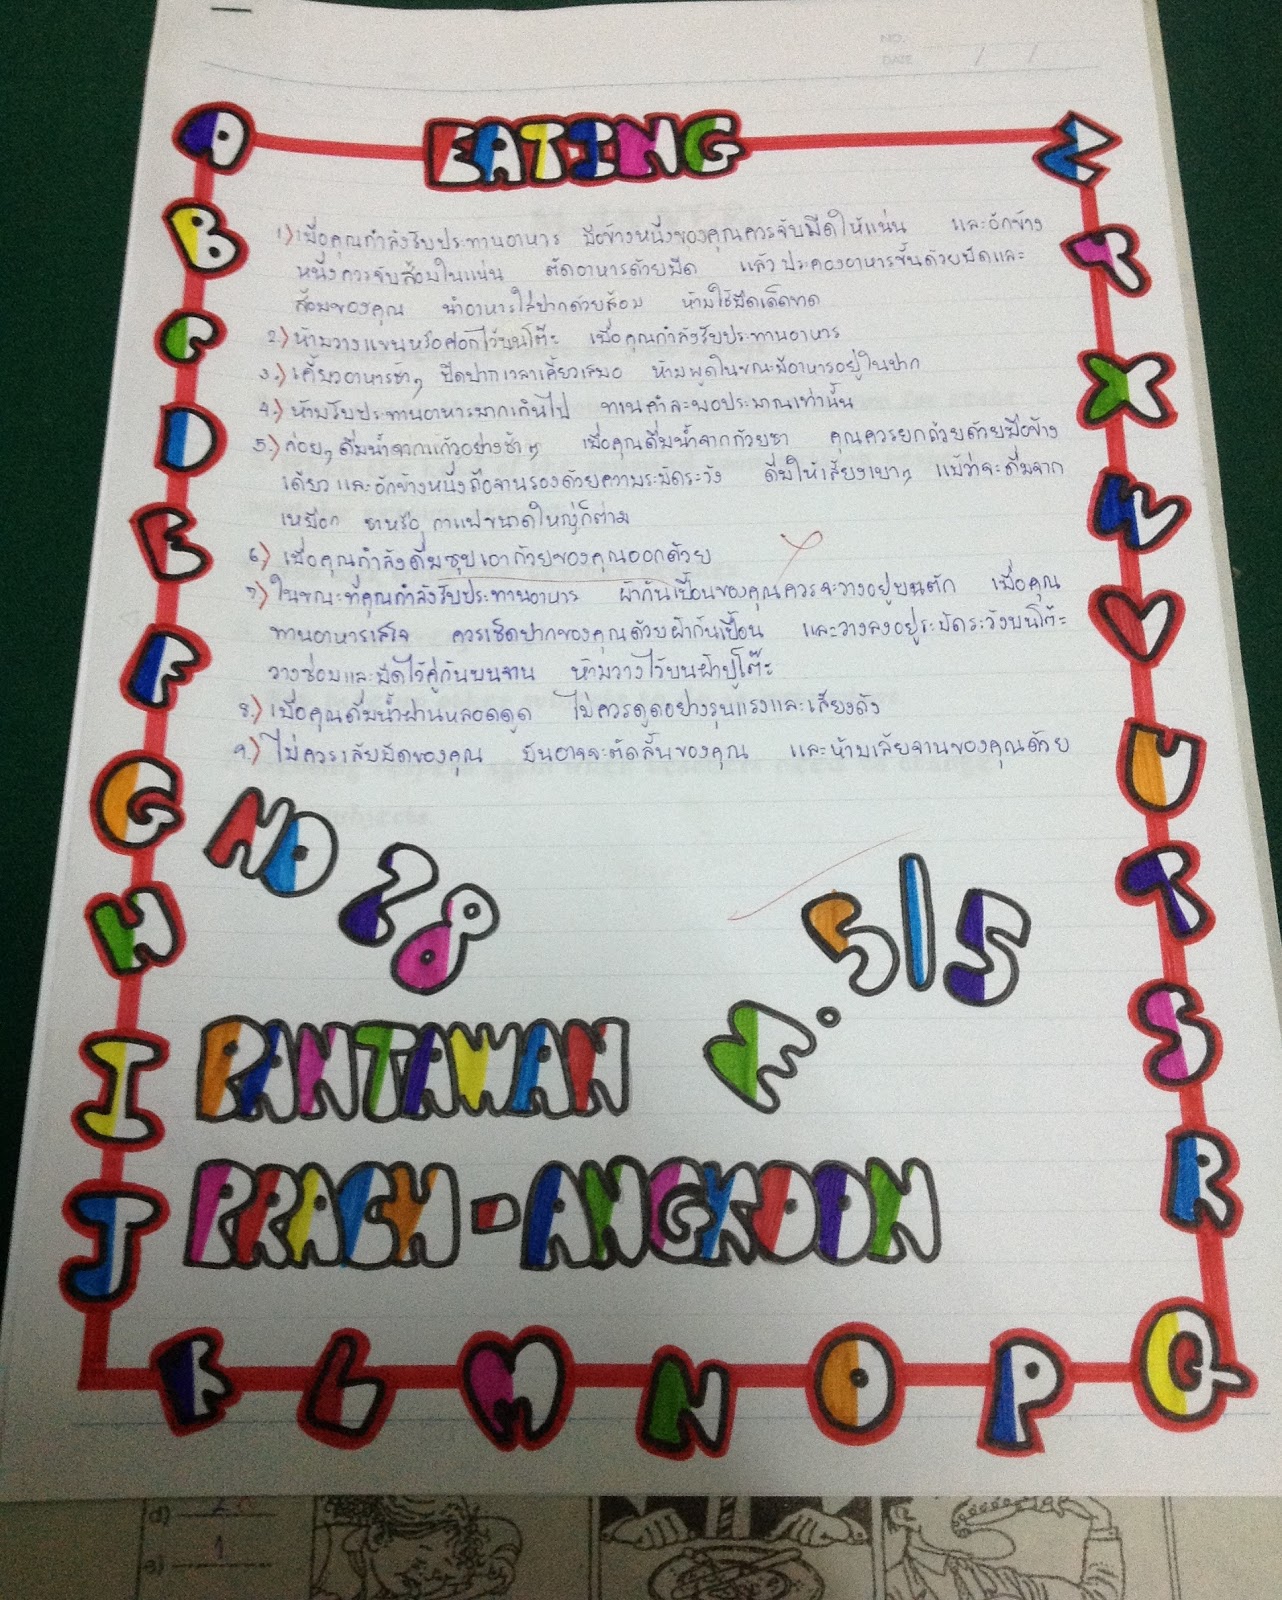 NO.
DATE / /
EATING
1.) เมื่อคุณกำลังรับประทานอาหาร มือข้างหนึ่งของคุณควรจับมีดให้แน่น และอีกข้าง
หนึ่งควรจับส้อมในแน่น ตัดอาหารด้วยมีด แล้วประคองอาหารขึ้นด้วยมีดและ
ส้อมของคุณ นำอาหารใส่ปากด้วยส้อม ห้ามใช้มีดเด็ดขาด
2.) ห้ามวางแขนหรือศอกไว้บนโต๊ะ เมื่อคุณกำลังรับประทานอาหาร
3.) เคี้ยวอาหารช้าๆ ปิดปากเวลาเคี้ยวเสมอ ห้ามพูดในขณะมีอาหารอยู่ในปาก
4.) ห้ามรับประทานอาหารมากเกินไป ทานคำละพอประมาณเท่านั้น
5.) ค่อยๆ ดื่มน้ำจากแก้วอย่างช้าๆ เมื่อคุณดื่มน้ำจากถ้วยชา คุณควรยกถ้วยด้วยมือข้าง
เดียว และอีกข้างหนึ่งถือจานรองด้วยความระมัดระวัง ดื่มให้เสียงเบาๆ แม้ว่าจะดื่มจาก
เหยือก ชาหรือ กาแฟขนาดใหญ่ก็ตาม
6.) เมื่อคุณกำลังดื่มซุปเอาถ้วยของคุณออกด้วย
7.) ในขณะที่คุณกำลังรับประทานอาหาร ผ้ากันเปื้อนของคุณควรจะวางอยู่บนตัก เมื่อคุณ
ทานอาหารเสร็จ ควรเช็ดปากของคุณด้วยผ้ากันเปื้อน และวางลงอยู่ระมัดระวังบนโต๊ะ
วางช่อมและมีดไว้คู่กันบนจาน ห้ามวางไว้บนผ้าปูโต๊ะ
8.) เมื่อคุณดื่มน้ำผ่านหลอดดูด ไม่ควรดูดอย่างรุนแรงและเสียงดัง
9.) ไม่ควรเลียมีดของคุณ มันอาจจะตัดลิ้นของคุณ และห้ามเลียจานของคุณด้วย
NO 28
M. 5/5
PANTAWAN
PRACH-ANGKOON
A
B
C
D
E
F
G
H
I
J
K
L
M
N
O
P
Q
R
S
T
U
V
W
X
Y
Z
d)
e) 1